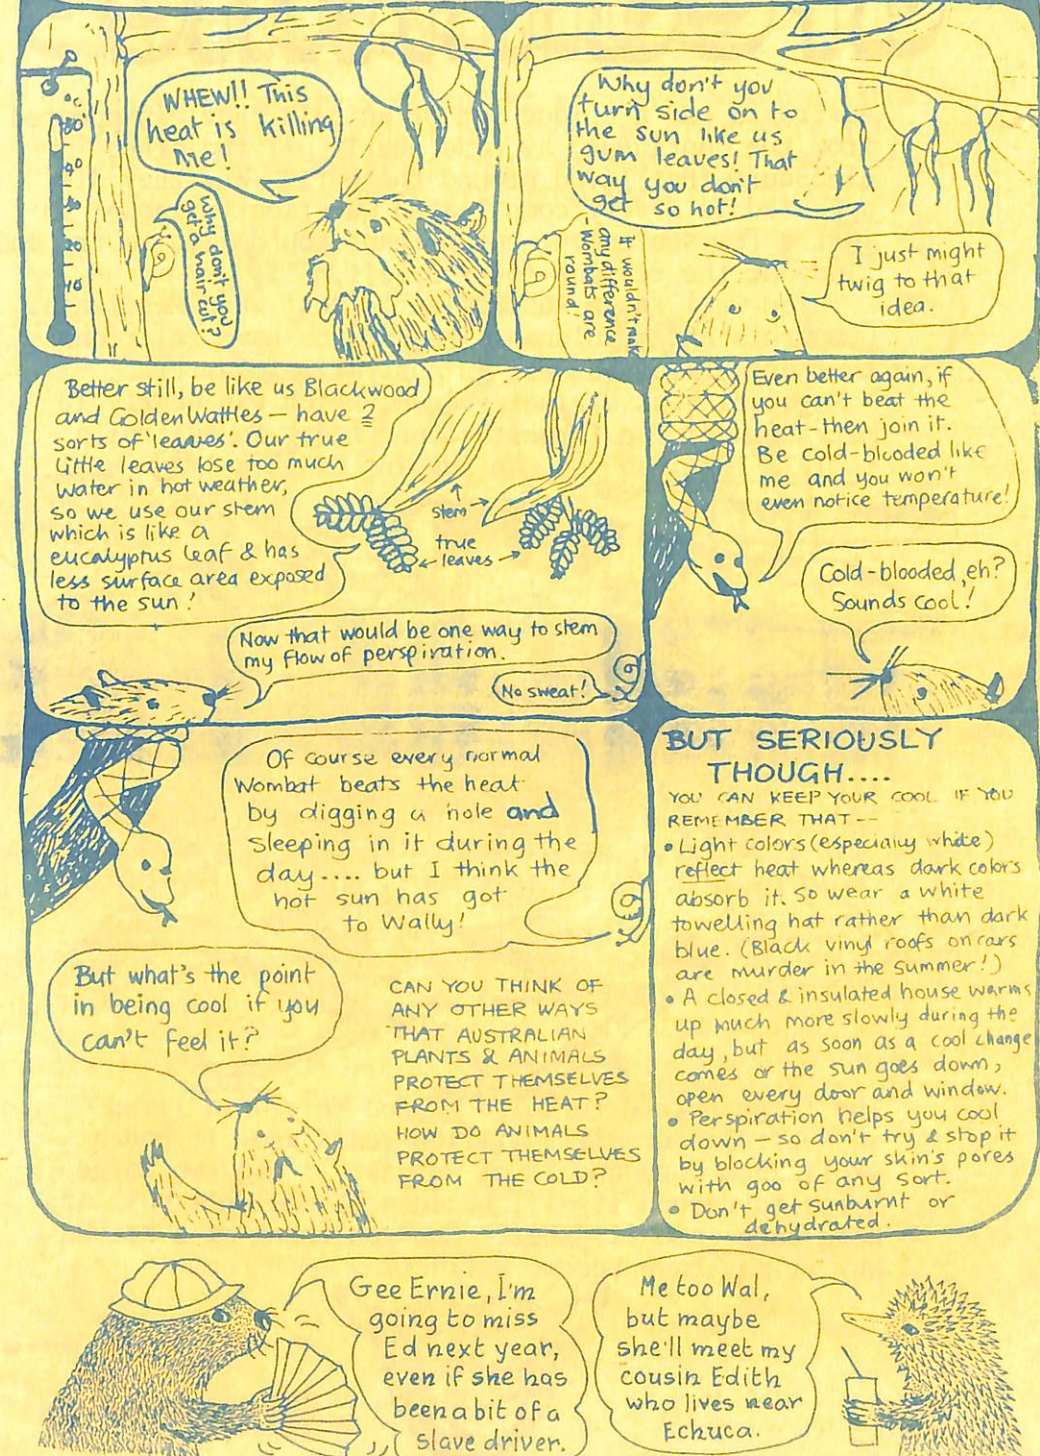 WHEW!! This
heat is killing
me!
Why don't you
get a hair cut?
°C
50°
40
30
20
10
Why don't you
turn side on to
the sun like us
gum leaves! That
way you don't
get so hot!
It wouldn't make
any difference
- Wombats are
round!
I just might
twig to that
idea.
Better still, be like us Blackwood
and Golden Wattles — have 2
sorts of 'leaves'. Our true
little leaves lose too much
water in hot weather,
so we use our stem
which is like a
eucalyptus leaf & has
less surface area exposed
to the sun!
stem
true
leaves
Now that would be one way to stem
my flow of perspiration.
No sweat!
Even better again, if
you can't beat the
heat - then join it.
Be cold-blooded like
me and you won't
even notice temperature!
Cold-blooded, eh?
Sounds cool!
Of course every normal
Wombat beats the heat
by digging a hole and
sleeping in it during the
day.... but I think the
hot sun has got
to Wally!
But what's the point
in being cool if you
can't feel it?
CAN YOU THINK OF
ANY OTHER WAYS
THAT AUSTRALIAN
PLANTS & ANIMALS
PROTECT THEMSELVES
FROM THE HEAT?
HOW DO ANIMALS
PROTECT THEMSELVES
FROM THE COLD?
BUT SERIOUSLY
THOUGH....
YOU CAN KEEP YOUR COOL IF YOU
REMEMBER THAT --
• Light colors (especially white)
reflect heat whereas dark colors
absorb it. So wear a white
towelling hat rather than dark
blue. (Black vinyl roofs on cars
are murder in the summer!)
• A closed & insulated house warms
up much more slowly during the
day, but as soon as a cool change
comes or the sun goes down,
open every door and window.
• Perspiration helps you cool
down — so don't try & stop it
by blocking your skin's pores
with goo of any sort.
• Don't get sunburnt or
dehydrated.
Gee Ernie, I'm
going to miss
Ed next year,
even if she has
been a bit of a
slave driver.
Me too Wal,
but maybe
she'll meet my
cousin Edith
who lives near
Echuca.